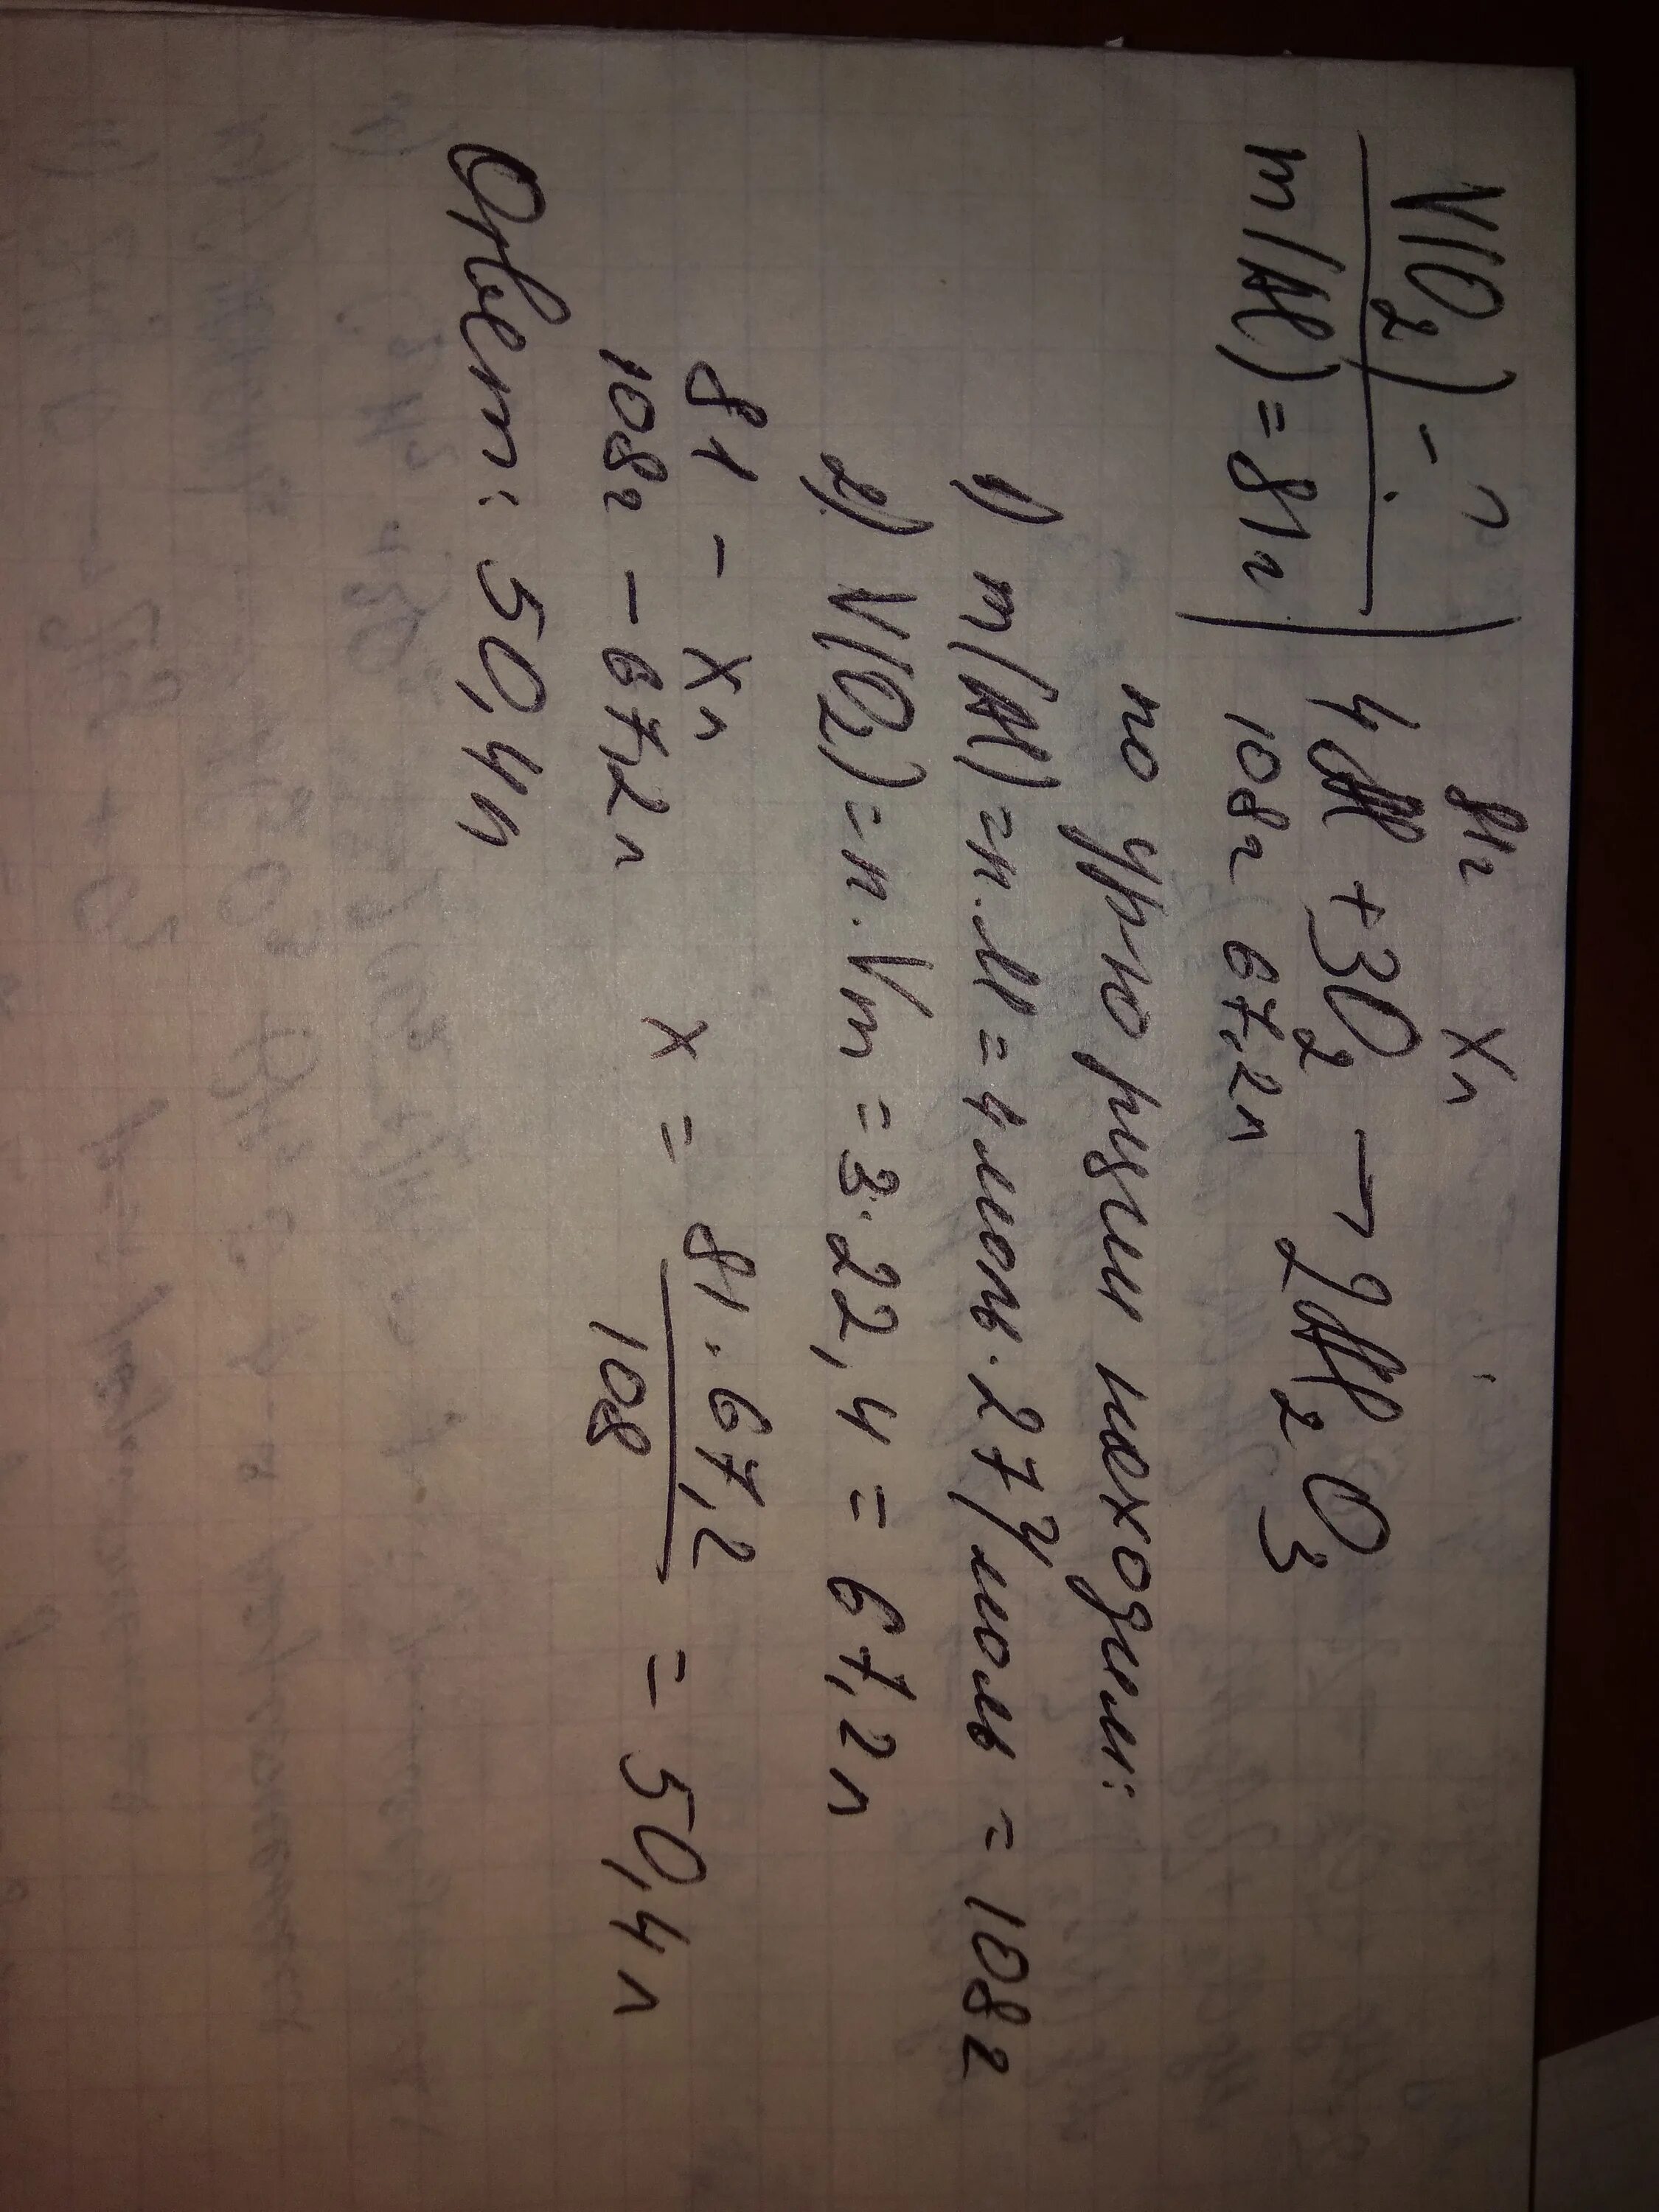 V(O₂) - л
m(Al) = 81г
81г Xл
4Al + 3O₂ → 2Al₂O₃
108г 67,2л
по ур-ю р-ции находим:
1) m(Al) = n·M = 4моль·27г/моль = 108г
2) V(O₂) = n·Vm = 3·22,4 = 67,2л
81 - Xл
108г - 67,2л
x = 81·67,2 / 108 = 50,4л
Ответ: 50,4л